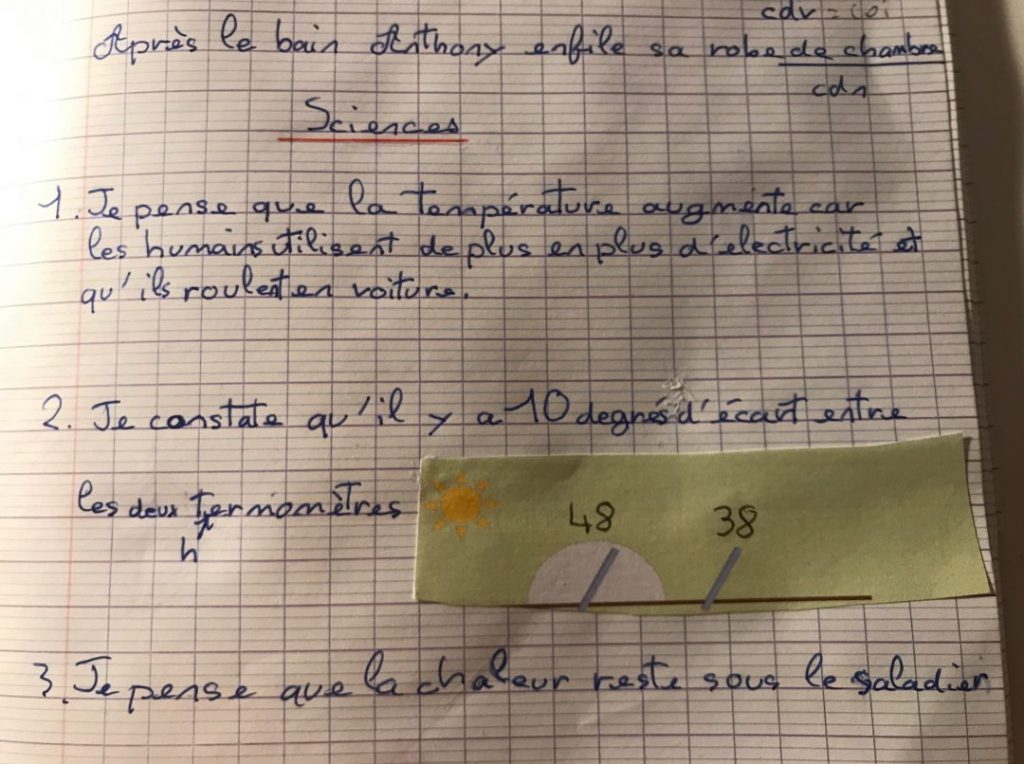 cdv = coi
Après le bain Anthony enfile sa robe de chambre
cdn
Sciences
1. Je pense que la température augmente car
les humains utilisent de plus en plus d'electricité et
qu'ils roulent en voiture.
2. Je constate qu'il y a 10 degrés d'écart entre
les deux termomètres
h
48 38
3. Je pense que la chaleur reste sous le saladier